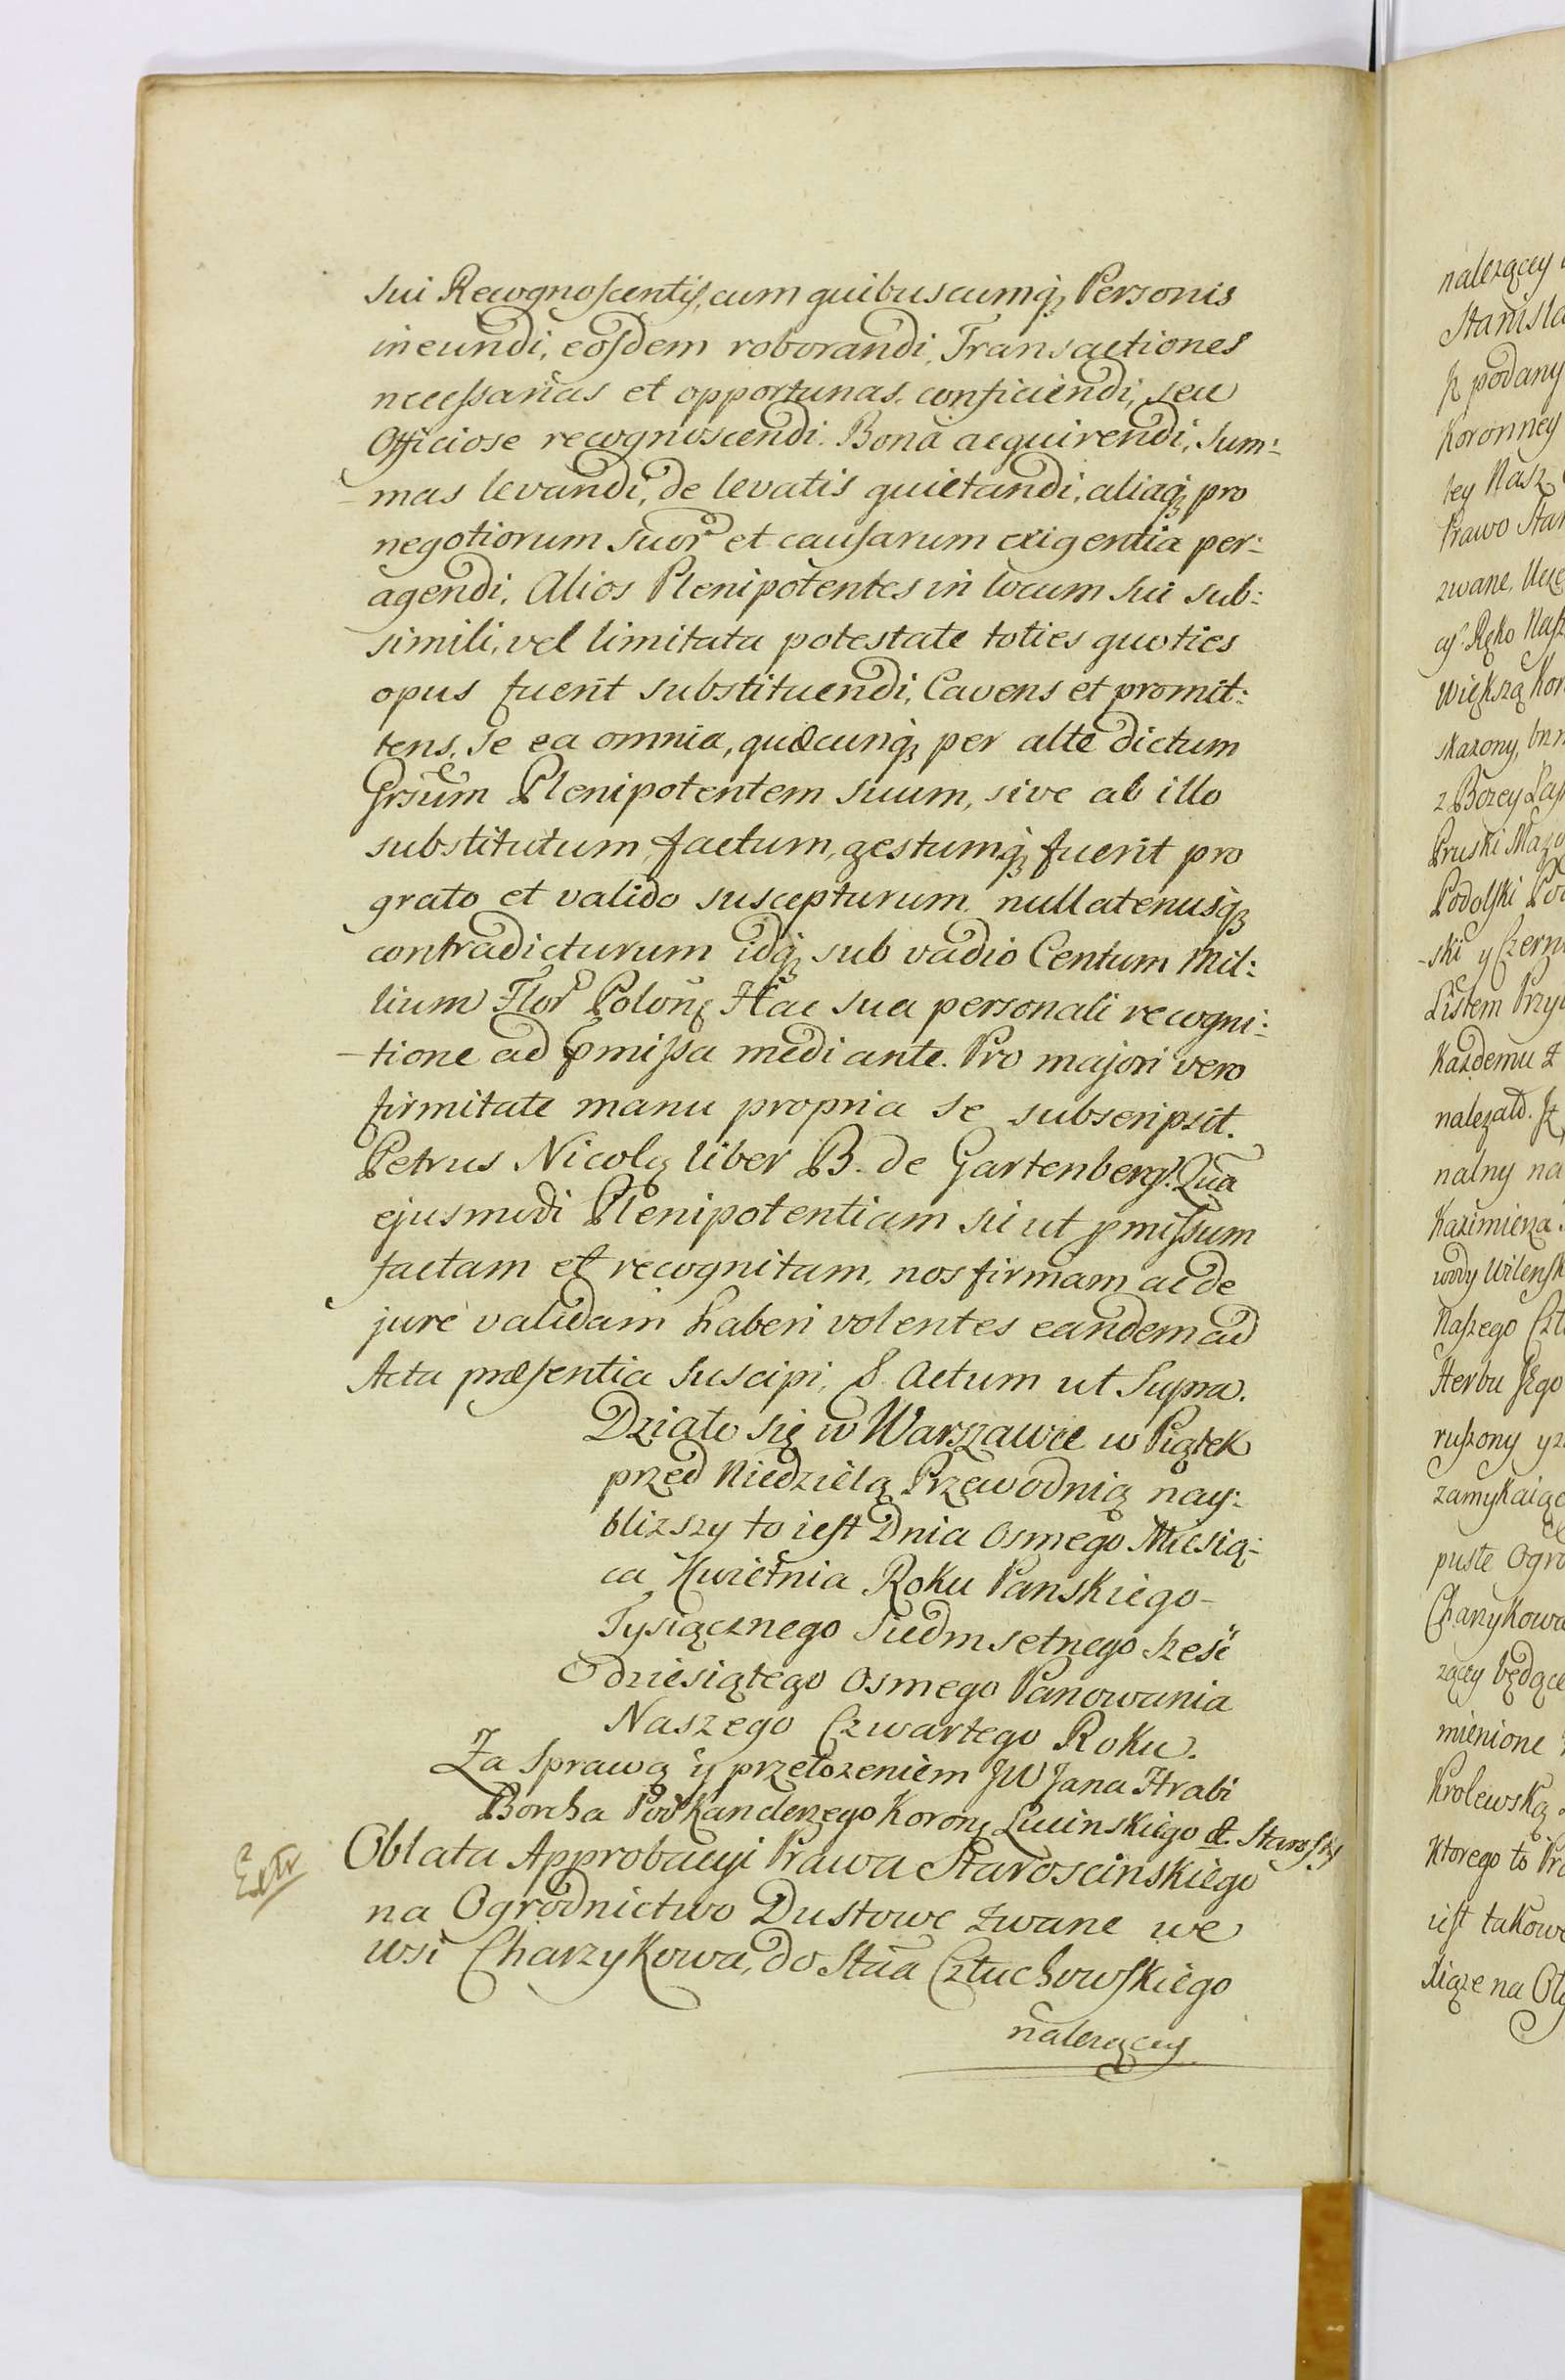 sui Recognoscentis, cum quibuscumq; Personis
ineundi, eosdem roborandi, Transactiones
necessarias et opportunas conficiendi, seu
Officiose recognoscendi. Bona acquirendi, Sum:
mas levandi, de levatis quietandi, aliaq; pro
negotiorum suor et causarum exigentia per:
agendi. Alios Plenipotentes in locum sui sub:
simili, vel limitata potestate toties quoties
opus fuerit substituendi, Cavens et promit:
tens, Se ea omnia, quæcunq; per alte dictum
Grsum Plenipotentem suum, sive ab illo
substitutum, factum, gestumq; fuerit pro
grato et valido suscepturum, nullatenusq;
contradicturum idq; sub vadio Centum Mil:
lium Flor Polon; Hac sua personali recogni:
tione ad pmissa mediante. Pro majori vero
firmitate manu propria se subscripsit.
Petrus Nicolaę liber B. de Gartenberg. Qua
ejusmodi Plenipotentiam sic ut pmissum
factam et recognitam, nos firmam ac de
jure validam haberi volentes eandem ad
Acta præsentia suscipi, &. Actum ut Supra.
Działo się w Warszawie w Piątek
przed Niedzielą Przewodnią nay:
blizszy to iest Dnia Osmego Miesią:
ca Kwietnia Roku Panskiego
Tysiącznego Siedmsetnego sześć
dziesiątego Osmego Panowania
Naszego Czwartego Roku.
Za Sprawą y przełożeniem JW Jana Hrabi
Borcha Podkanclerzego Koronę Lucinskiego &.
Extr
Oblata Approbacyi Prawa Staroscinskiego
na Ogrodnictwo Dustowe zwane we
wsi Charzykowa, do Sttwa Człuchowskiego
nalezącey
nalezącey
Stanisła
podany
Koronney
tey Nasz
Prawo Star
zwane,
Ręko Nasz
większą Kor
z Bozey Łas
Pruski Mazo
Podolski Po
-ski y Czern
Listem Przy
Kazdemu z
nalezało.
nalny na
Kazimierza
wody Wilensk
Naszego
Herbu Jego
ruszony y
zamykaiąc
puste Ogro
Charzykowa
ząęy będące
mienione
Krolewską
Ktorego to Pra
iest takowe
Xiąze na Oly